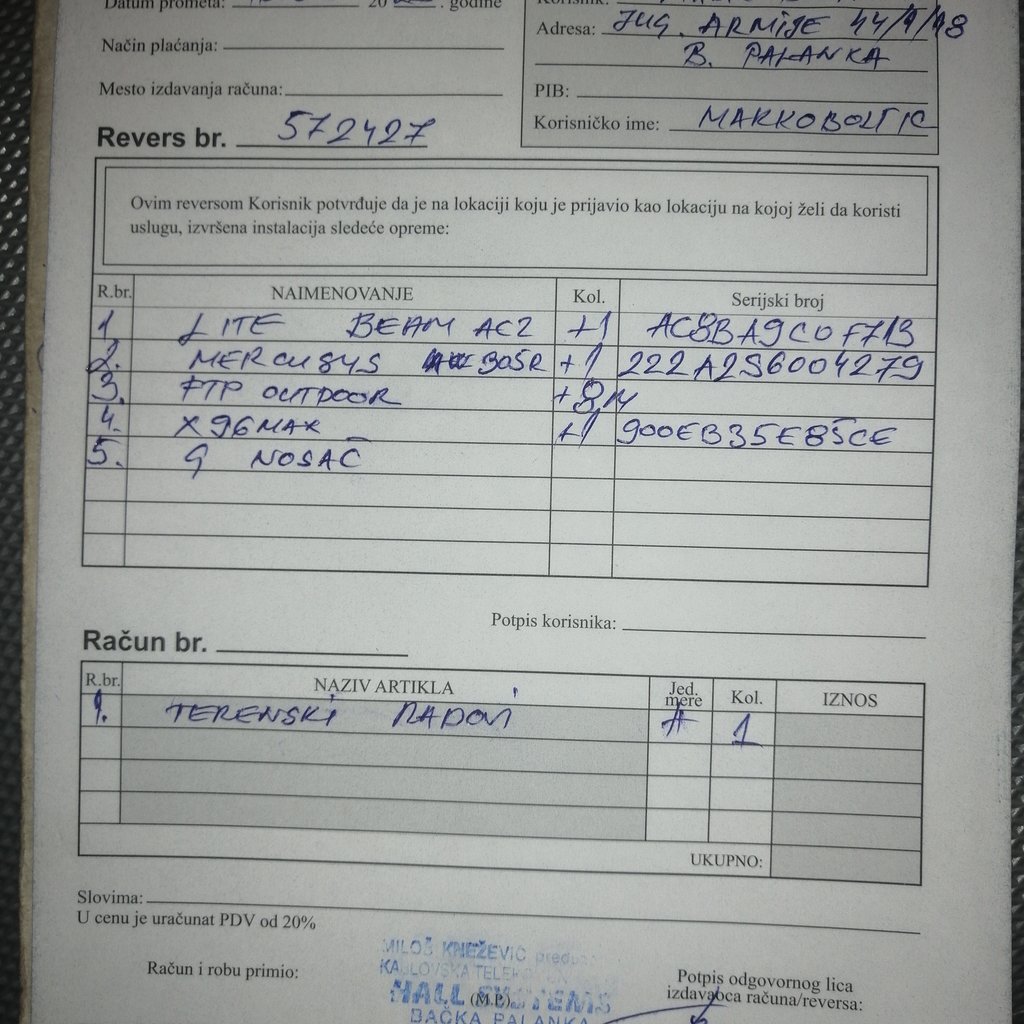 Datum prometa: 20 . godine
Korisnik:
Adresa: JUG. ARMIJE 44/1/18
B. PALANKA
Način plaćanja:
Mesto izdavanja računa:
PIB:
Korisničko ime: MARKOBOLTIC
Revers br. 572427
Ovim reversom Korisnik potvrđuje da je na lokaciji koju je prijavio kao lokaciju na kojoj želi da koristi
uslugu, izvršena instalacija sledeće opreme:
R.br. NAIMENOVANJE Kol. Serijski broj
1. LITE BEAM AC2 +1 AC8BA9C0F71B
2. MERCUSYS 305R +1 222A2S6004279
3. FTP OUTDOOR +8M
4. X96MAX +1 900EB35E85CE
5. G NOSAČ
Potpis korisnika:
Račun br.
R.br. NAZIV ARTIKLA Jed. mere Kol. IZNOS
1. TERENSKI RADOVI 1
UKUPNO:
Slovima:
U cenu je uračunat PDV od 20%
MILOŠ KNEŽEVIĆ
Račun i robu primio:
HALL SYSTEMS
(M.P.)
BAČKA PALANKA
Potpis odgovornog lica
izdavaoca računa/reversa: